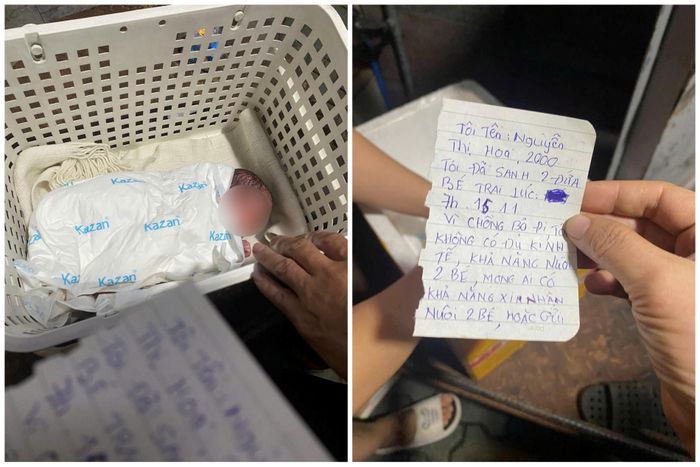 Kazan
Kazan
Kazan
Kazan
Kazan
Kazan
Kazan
TÔI TÊN: NGUYỄN
THỊ HOA 2000
TÔI ĐÃ SANH 2 ĐỨA
BÉ TRAI LÚC:
7h 15.11
VÌ CHỒNG BỎ ĐI, TÔI
KHÔNG CÓ ĐỦ KINH
TẾ, KHẢ NĂNG NUÔI
2 BÉ, MONG AI CÓ
KHẢ NĂNG XIN NHẬN
NUÔI 2 BÉ, HOẶC GỬI